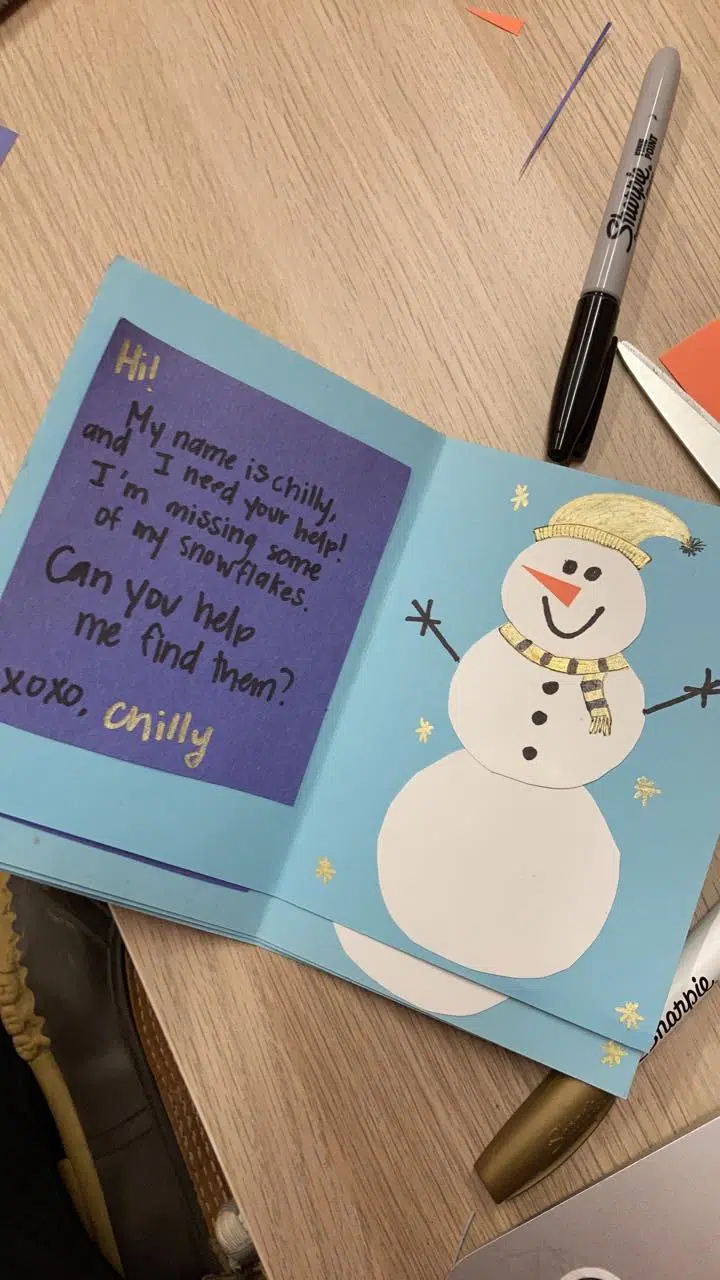 Hi!
My name is chilly,
and I need your help!
I'm missing some
of my snowflakes.
Can you help
me find them?
xoxo, chilly
Sharpie.
FINE POINT
Sharpie